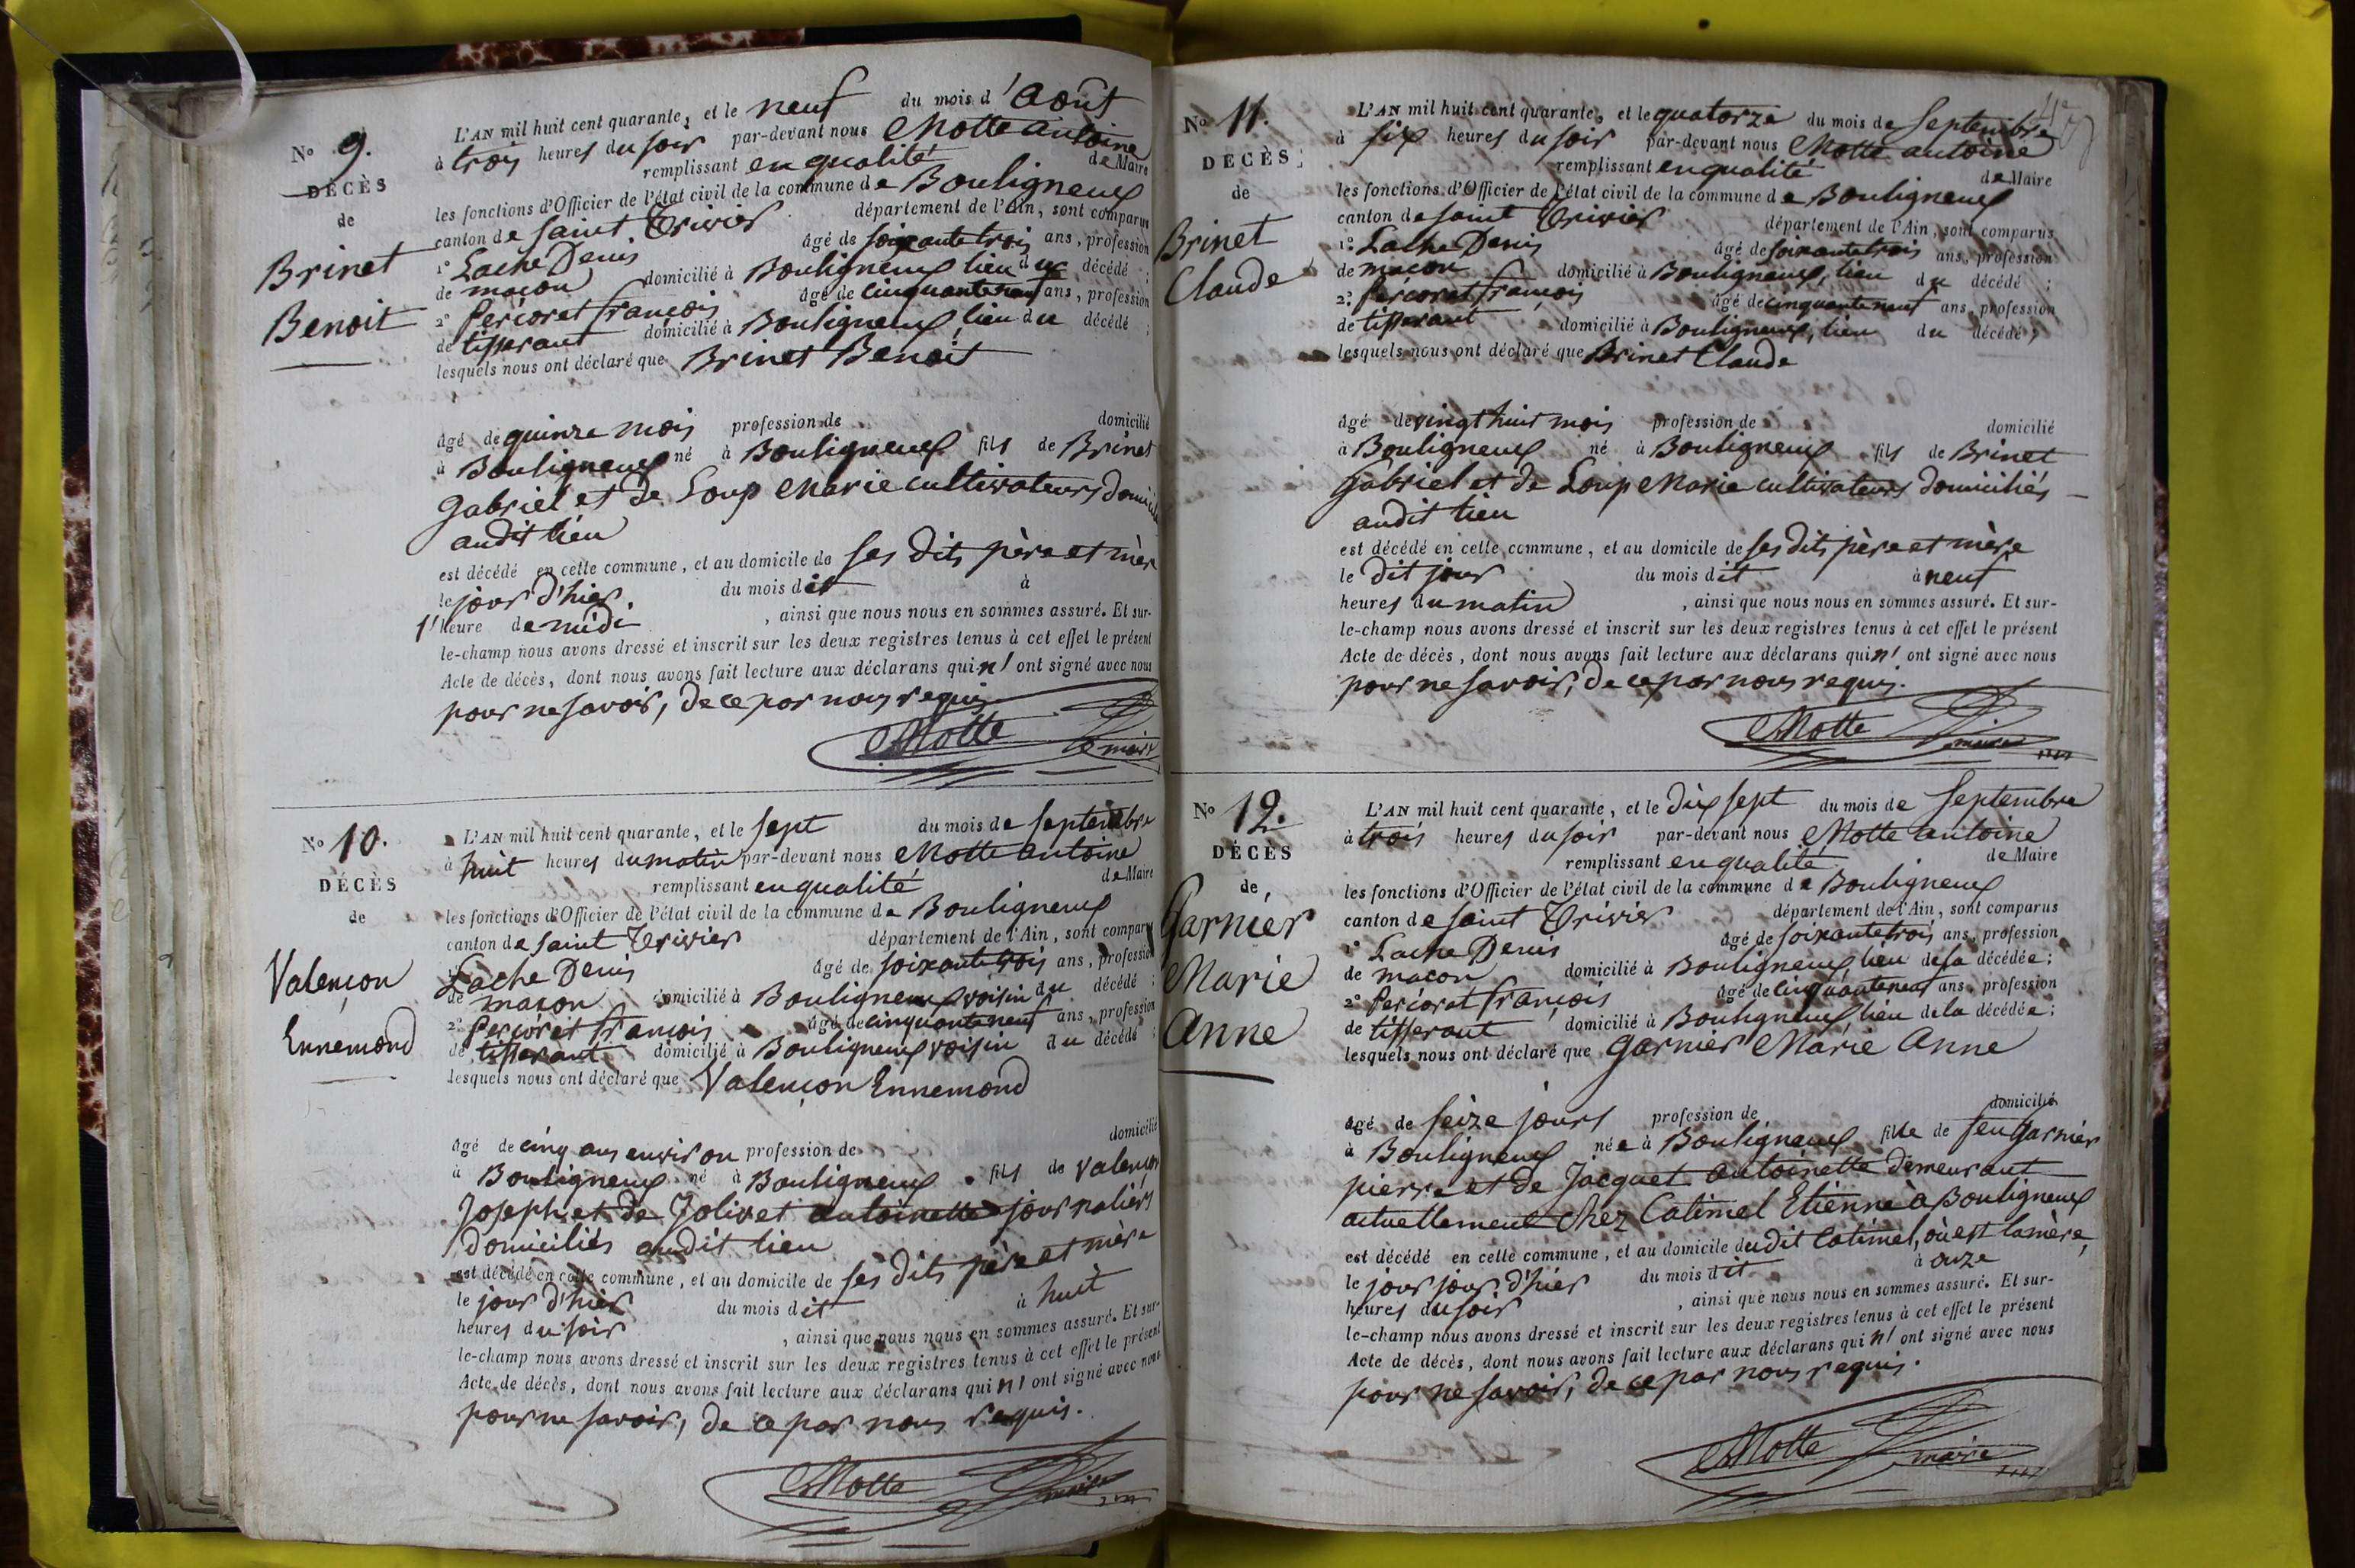 No 9.
DÉCÈS
de
Brinet
Benoit
L'AN mil huit cent quarante, et le neuf du mois d'Août
à trois heures du soir par-devant nous Motte antoine
remplissant en qualité de Maire
les fonctions d'Officier de l'état civil de la commune de Bouligneux
canton de saint Trivier département de l'Ain, sont comparus
1° Lache Denis âgé de soixante trois ans, profession
de maçon domicilié à Bouligneux lieu du décédé ;
2° Percoret françois âgé de cinquante neuf ans, profession
de tisserant domicilié à Bouligneux, lieu du décédé ;
lesquels nous ont déclaré que Brinet Benoit
âgé de quinze mois profession de domicilié
à Bouligneux né à Bouligneux fils de Brinet
Gabriel et de Loup Marie cultivateurs domiciliés
audit lieu
est décédé en cette commune, et au domicile de ses dits père et mère
le jour d'hier du mois dit à
1' heure de midi , ainsi que nous nous en sommes assuré. Et sur-
le-champ nous avons dressé et inscrit sur les deux registres tenus à cet effet le présent
Acte de décès, dont nous avons fait lecture aux déclarans qui n' ont signé avec nous
pour ne savoir, de ce par nous requis
Motte maire
No 10.
DÉCÈS
de
Valençon
Ennemond
L'AN mil huit cent quarante, et le sept du mois de septembre
à huit heures du matin par-devant nous Motte antoine
remplissant en qualité de Maire
les fonctions d'Officier de l'état civil de la commune de Bouligneux
canton de saint Trivier département de l'Ain, sont comparus
Lache Denis âgé de soixante trois ans, profession
de maçon domicilié à Bouligneux voisin du décédé ;
2° Percoret françois âgé de cinquante neuf ans, profession
de tisserant domicilié à Bouligneux voisin du décédé ;
lesquels nous ont déclaré que Valençon Ennemond
âgé de cinq ans environ profession de domicilié
à Bouligneux né à Bouligneux fils de Valençon
Joseph et de Jolivet antoinette journaliers
domiciliés audit lieu
est décédé en cette commune, et au domicile de ses dits père et mère
le jour d'hier du mois dit à huit
heures du soir , ainsi que nous nous en sommes assuré. Et sur-
le-champ nous avons dressé et inscrit sur les deux registres tenus à cet effet le présent
Acte de décès, dont nous avons fait lecture aux déclarans qui n' ont signé avec nous
pour ne savoir, de ce par nous requis.
Motte maire
No 11.
DÉCÈS
de
Brinet
Claude
L'AN mil huit cent quarante, et le quatorze du mois de Septembre
à six heures du soir par-devant nous Motte antoine
remplissant en qualité de Maire
les fonctions d'Officier de l'état civil de la commune de Bouligneux
canton de saint Trivier département de l'Ain, sont comparus
1° Lache Denis âgé de soixante trois ans, profession
de maçon domicilié à Bouligneux, lieu du décédé ;
2° Percoret françois âgé de cinquante neuf ans, profession
de tisserant domicilié à Bouligneux, lieu du décédé ;
lesquels nous ont déclaré que Brinet Claude
âgé de vingt huit mois profession de domicilié
à Bouligneux né à Bouligneux fils de Brinet
Gabriel et de Loup Marie cultivateurs domiciliés
audit lieu
est décédé en cette commune, et au domicile de ses dits père et mère
le dit jour du mois dit à neuf
heures du matin , ainsi que nous nous en sommes assuré. Et sur-
le-champ nous avons dressé et inscrit sur les deux registres tenus à cet effet le présent
Acte de décès, dont nous avons fait lecture aux déclarans qui n' ont signé avec nous
pour ne savoir, de ce par nous requis.
Motte maire
No 12.
DÉCÈS
de
Garnier
Marie
Anne
L'AN mil huit cent quarante, et le dix sept du mois de Septembre
à trois heures du soir par-devant nous Motte antoine
remplissant en qualité de Maire
les fonctions d'Officier de l'état civil de la commune de Bouligneux
canton de saint Trivier département de l'Ain, sont comparus
1° Lache Denis âgé de soixante trois ans, profession
de maçon domicilié à Bouligneux, lieu de la décédée ;
2° Percoret françois âgé de cinquante neuf ans, profession
de tisserant domicilié à Bouligneux, lieu de la décédée ;
lesquels nous ont déclaré que Garnier Marie Anne
âgé de seize jours profession de domicilié
à Bouligneux née à Bouligneux fille de feu Garnier
pierre et de Jacquet antoinette demeurant
actuellement chez Catimel Etienne à Bouligneux
est décédé en cette commune, et au domicile dudit Catimel, où est la mère,
le jour jour d'hier du mois dit à onze
heures du soir , ainsi que nous nous en sommes assuré. Et sur-
le-champ nous avons dressé et inscrit sur les deux registres tenus à cet effet le présent
Acte de décès, dont nous avons fait lecture aux déclarans qui n' ont signé avec nous
pour ne savoir, de ce par nous requis.
Motte maire